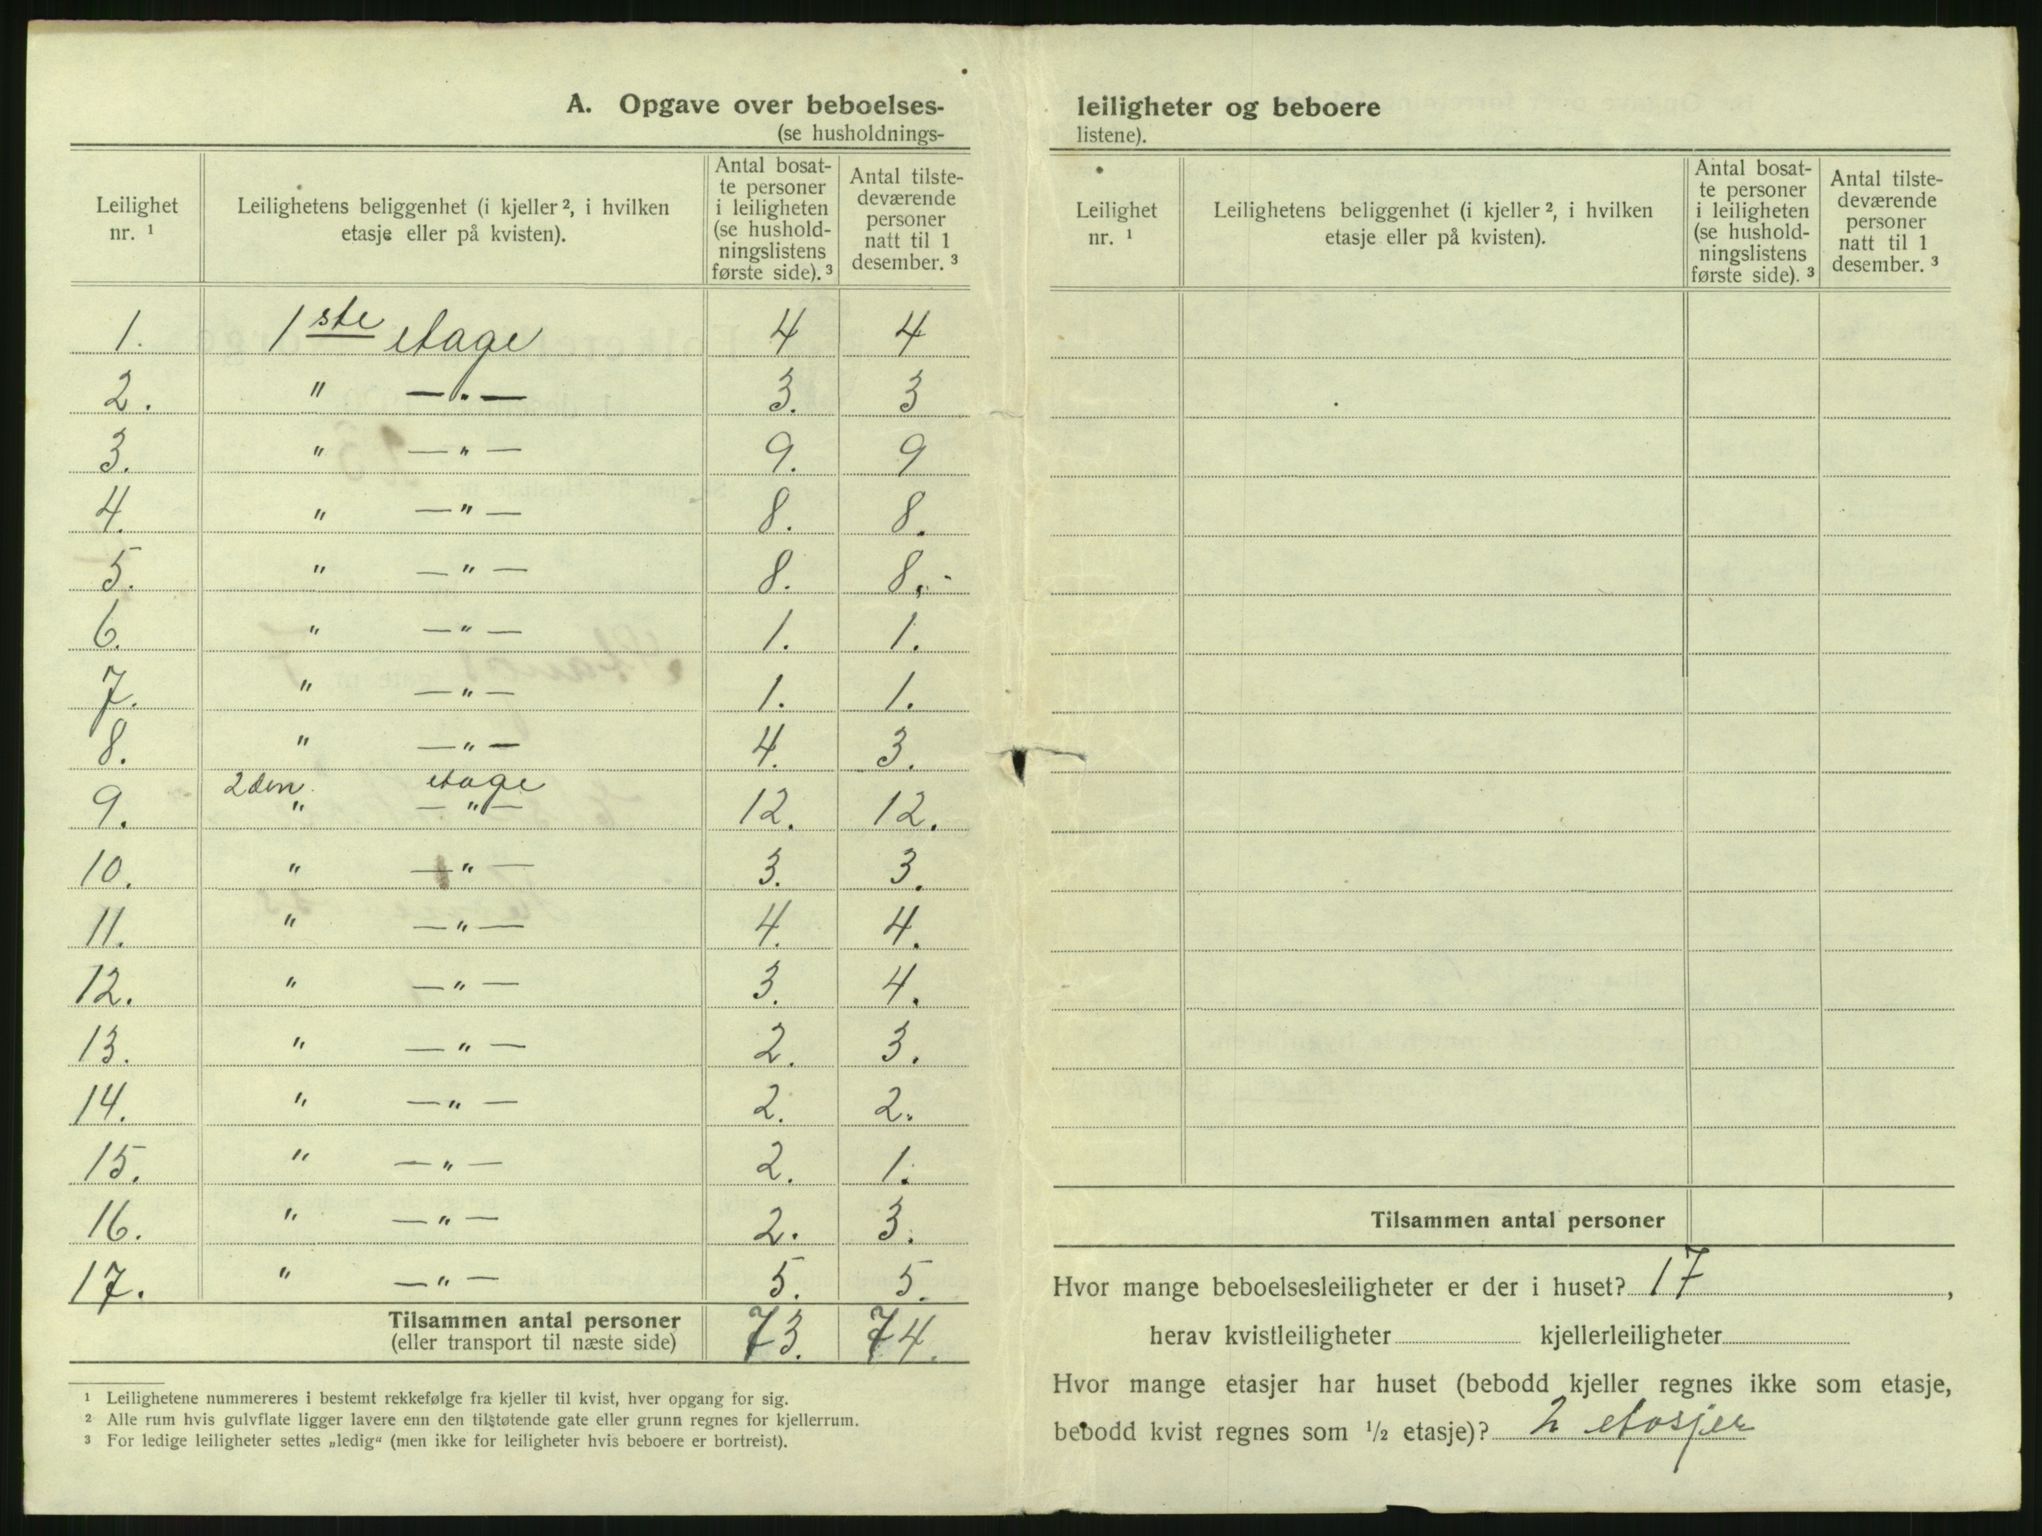 A. Opgave over beboelses-
(se husholdnings-
Leilighet nr. ¹ | Leilighetens beliggenhet (i kjeller ², i hvilken etasje eller på kvisten). | Antal bosat-te personer i leiligheten (se hushold-ningslistens første side). ³ | Antal tilste-deværende personer natt til 1 desember. ³
1. 1ste etage 4 4
2. " — . — 3. 3
3. " — " — 9. 9
4. " — " — 8. 8.
5. " — " — 8. 8.
6. " — " — 1. 1.
7. " — " — 1. 1.
8. " — " — 4. 3.
2den etage
9. " — " — 12. 12.
10. " — " — 3. 3.
11. " — " — 4. 4.
12. " — " — 3. 4.
13. " — " — 2. 3.
14. " — " — 2. 2.
15. " — " — 2. 1.
16. " — " — 2. 3.
17. " — " — 5. 5.
Tilsammen antal personer 73. 74.
(eller transport til næste side)
¹ Leilighetene nummereres i bestemt rekkefølge fra kjeller til kvist, hver opgang for sig.
² Alle rum hvis gulvflate ligger lavere enn den tilstøtende gate eller grunn regnes for kjellerrum.
³ For ledige leiligheter settes „ledig" (men ikke for leiligheter hvis beboere er bortreist).
leiligheter og beboere
listene).
Leilighet nr. ¹ | Leilighetens beliggenhet (i kjeller ², i hvilken etasje eller på kvisten). | Antal bosat-te personer i leiligheten (se hushold-ningslistens første side). ³ | Antal tilste-deværende personer natt til 1 desember. ³
Tilsammen antal personer
Hvor mange beboelsesleiligheter er der i huset? 17,
herav kvistleiligheter kjellerleiligheter
Hvor mange etasjer har huset (bebodd kjeller regnes ikke som etasje,
bebodd kvist regnes som ½ etasje)? 2 etasjer